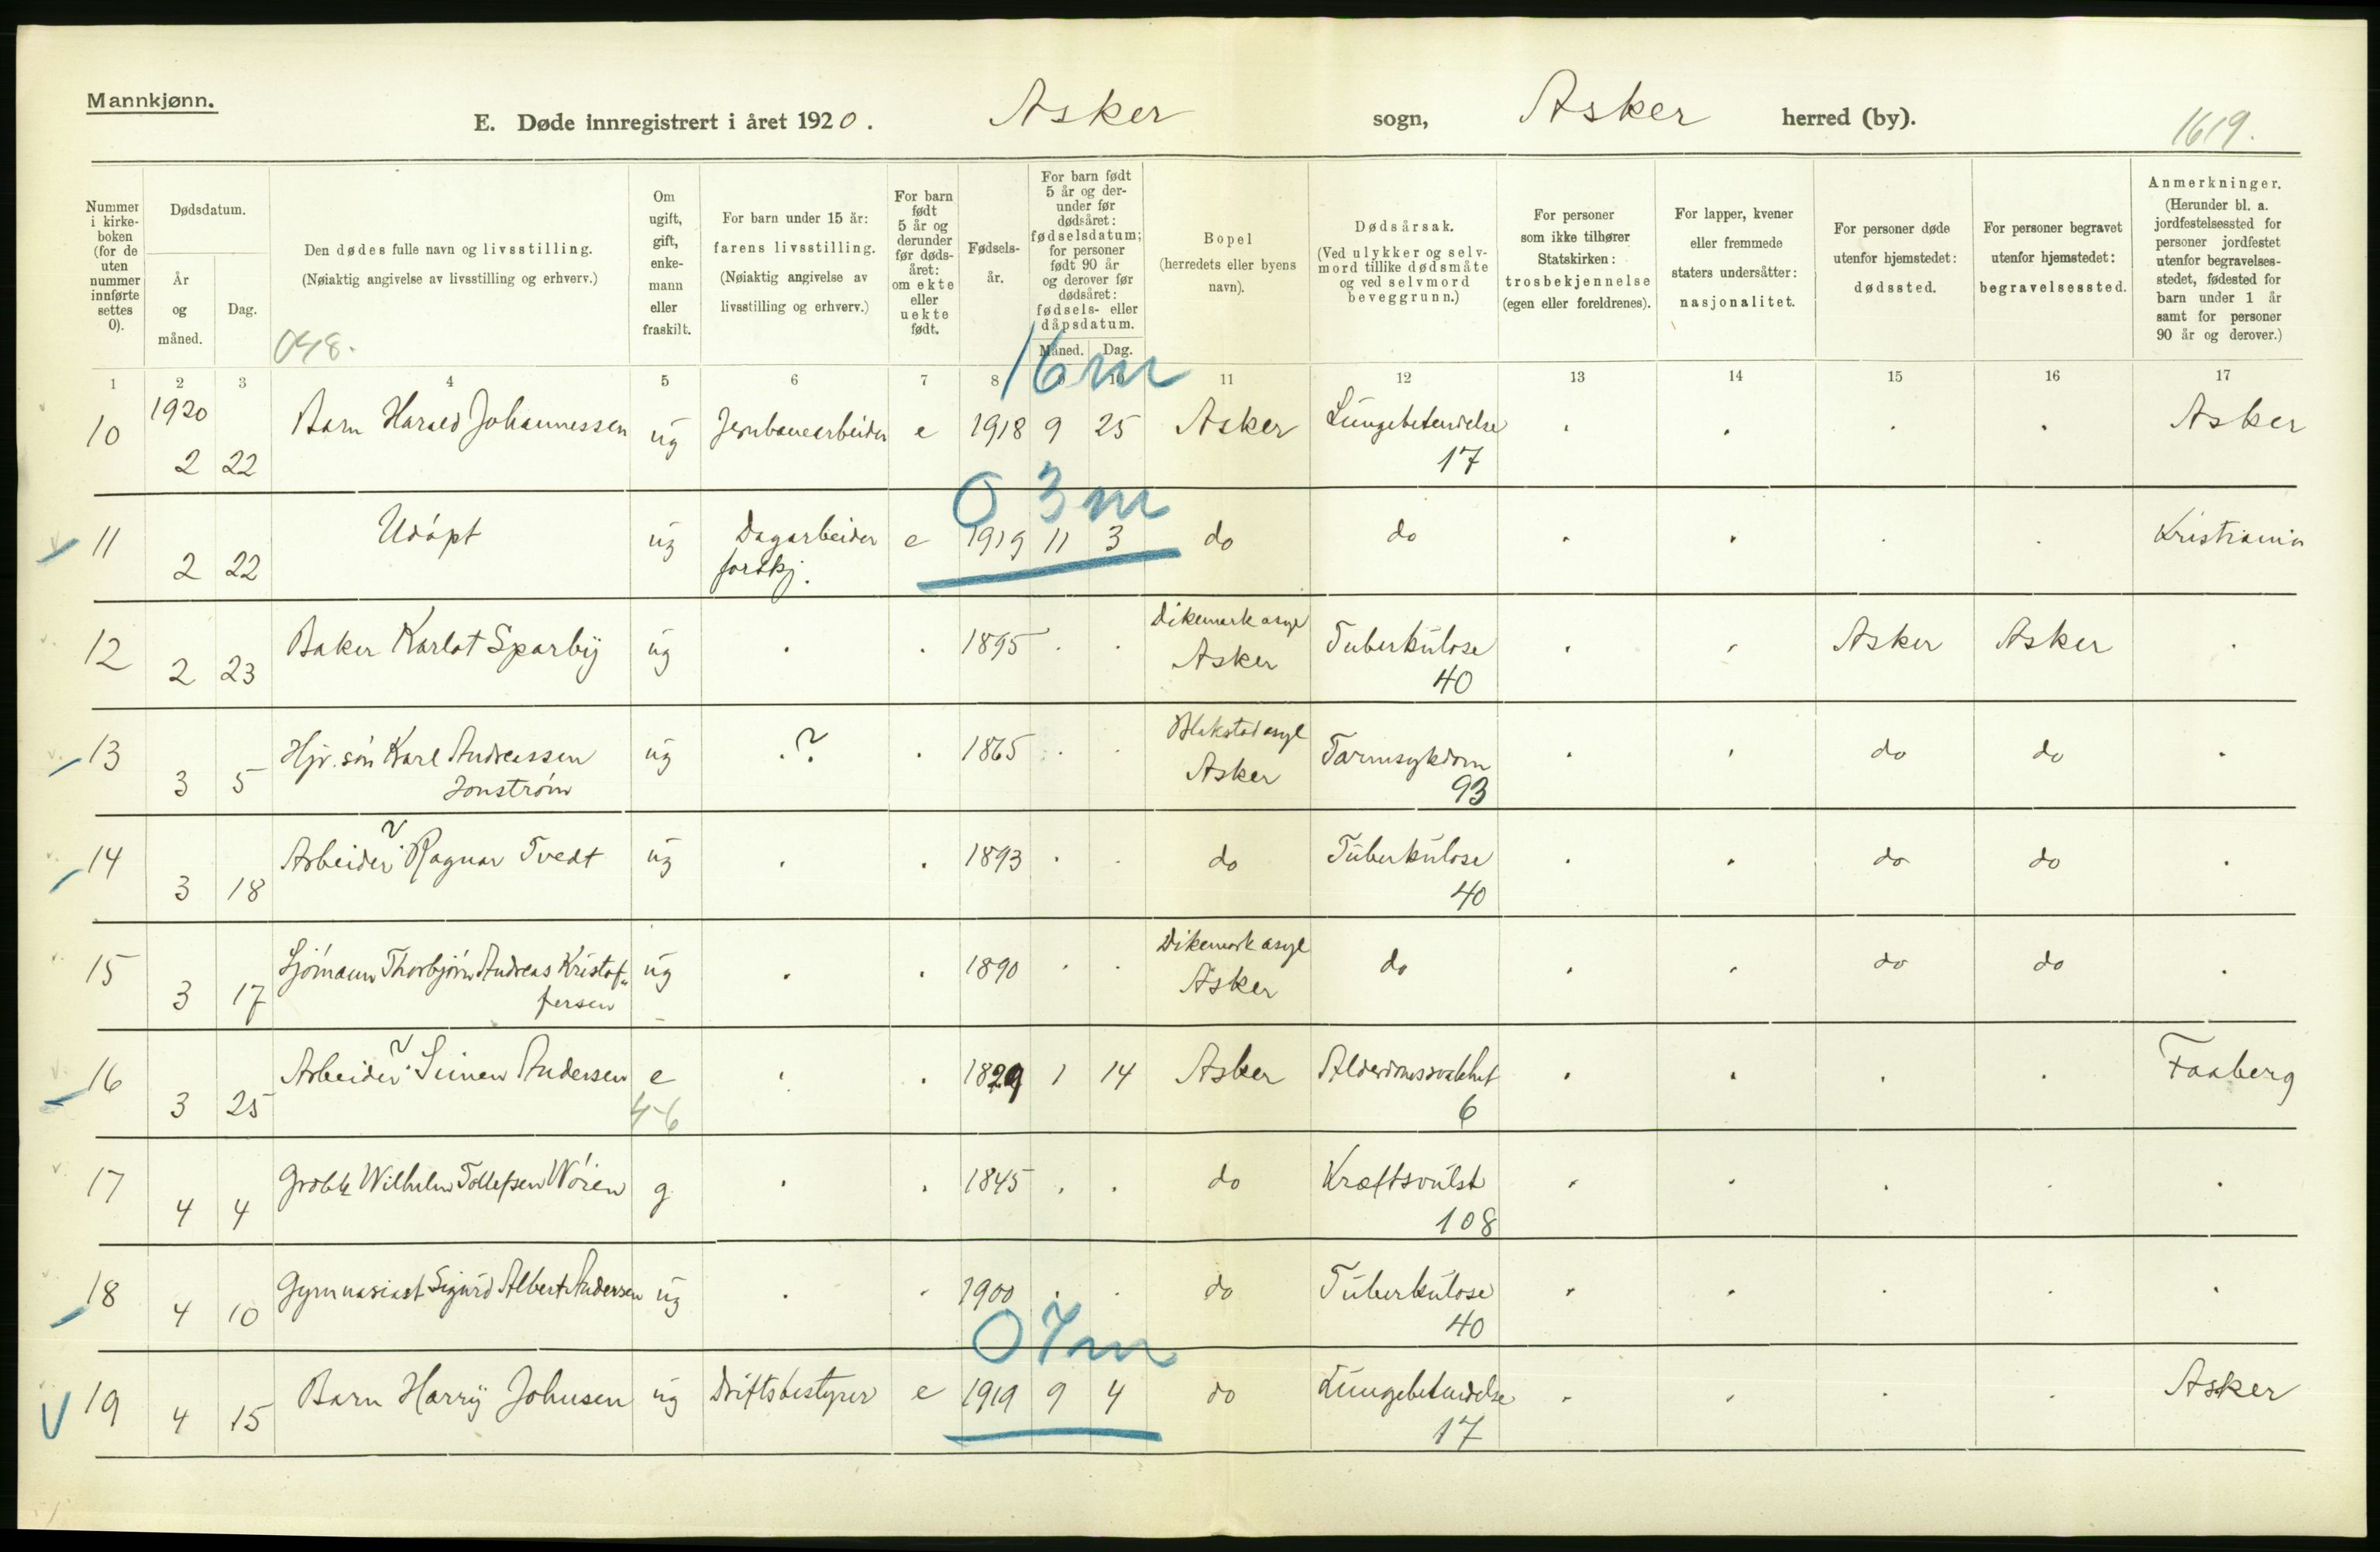 Mannkjønn.
E. Døde innregistrert i året 1920. Asker sogn, Asker herred (by). 1619.
Nummer i kirke-boken (for de uten nummer innførte settes 0).
Dødsdatum.
År og måned.
Dag.
Den dødes fulle navn og livsstilling.
(Nøiaktig angivelse av livsstilling og erhverv.)
048.
Om ugift, gift, enke-mann eller fraskilt.
For barn under 15 år: farens livsstilling.
(Nøiaktig angivelse av livsstilling og erhverv.)
For barn født 5 år og derunder før døds-året: om ekte eller uekte født.
Fødsels-år.
For barn født 5 år og der-under før dødsåret: fødselsdatum; for personer født 90 år og derover før dødsåret: fødsels- eller dåpsdatum.
Måned. Dag.
Bopel (herredets eller byens navn).
Dødsårsak.
(Ved ulykker og selv-mord tillike dødsmåte og ved selvmord beveggrunn.)
For personer som ikke tilhører Statskirken: trosbekjennelse (egen eller foreldrenes).
For lapper, kvener eller fremmede staters undersåtter: nasjonalitet.
For personer døde utenfor hjemstedet: dødssted.
For personer begravet utenfor hjemstedet: begravelsessted.
Anmerkninger.
(Herunder bl. a. jordfestelsessted for personer jordfestet utenfor begravelses-stedet, fødested for barn under 1 år samt for personer 90 år og derover.)
1 2 3 4 5 6 7 8 9 10 11 12 13 14 15 16 17
16 m
10 1920 2 22 Barn Harald Johannessen ug Jernbanearbeider e 1918 9 25 Asker Lungebetendelse 17 Asker
0 3 m
11 2 22 Udøpt ug Dagarbeider forskj. e 1919 11 3 do do Kristiania
12 2 23 Baker Karlot Sparby ug 1895 Dikemark asyl Asker Tuberkulose 40 Asker Asker
13 3 5 Hjv. søn Karl Andreassen Jonstrøm ug ? 1865 Blakstad asyl Asker Tarmsykdom 93 do do
14 3 18 Arbeider ? Ragnar Tvedt ug 1893 do Tuberkulose 40 do do
15 3 17 Sjömann Thorbjörn Andreas Kristof-fersen ug 1890 Dikemark asyl Asker do do do
16 3 25 Arbeider ? Simen Andersen e 4-6 1829 1 14 Asker Alderdomssvakhet 6 Faaberg
17 4 4 Wilhelm Tollefsen Wöien g 1845 do Kræftsvulst 108
18 4 10 Gymnasiast Sigurd Albert Andersen ug 1900 do Tuberkulose 40
0 7 m
19 4 15 Barn Harry Johnsen ug Driftsbestyrer e 1919 9 4 do Lungebetendelse 17 Asker